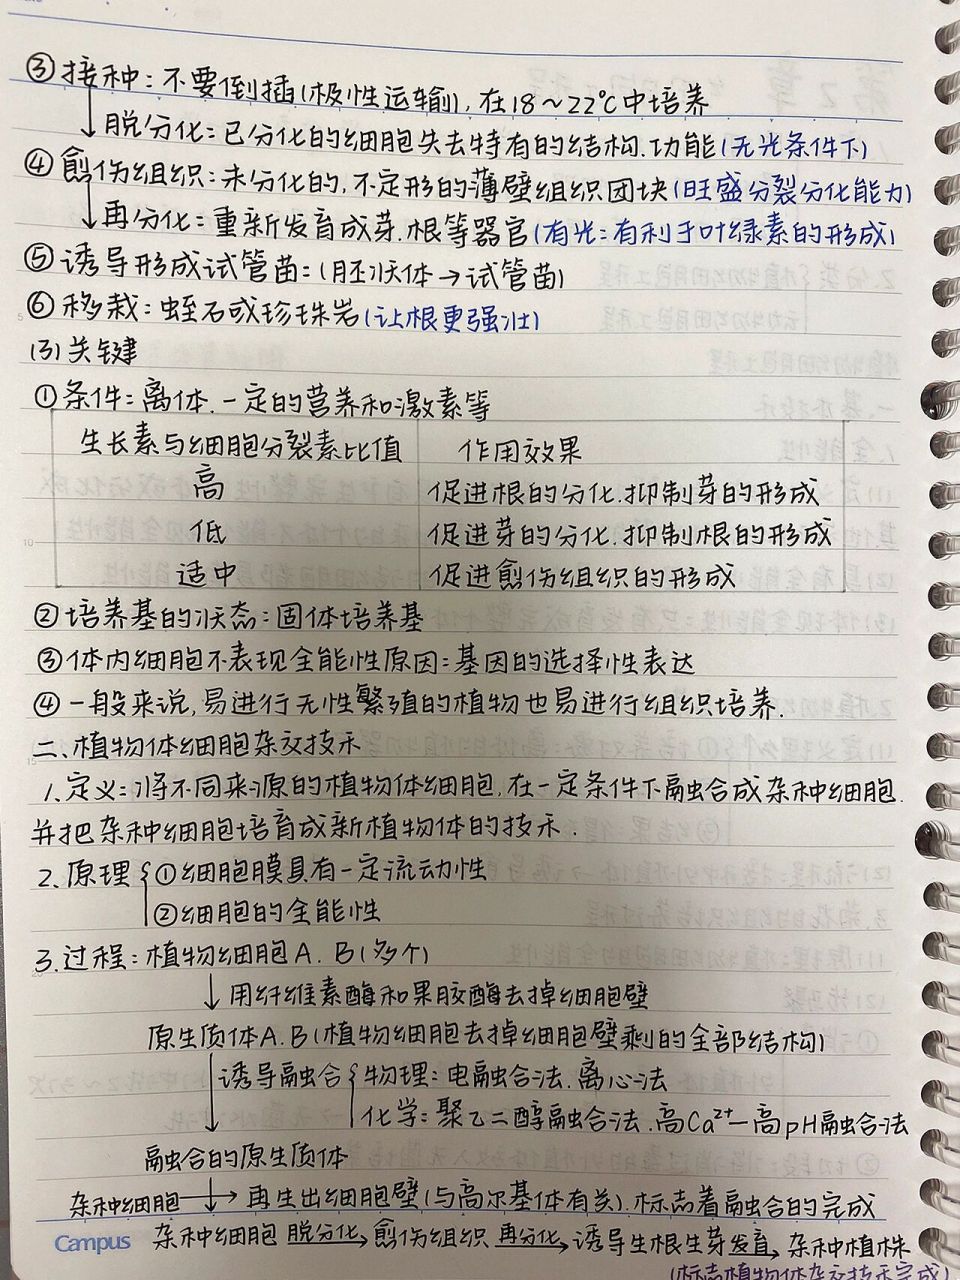 ③接种:不要倒插(极性运输),在18~22℃中培养
↓脱分化:已分化的细胞失去特有的结构.功能(无光条件下)
④愈伤组织:未分化的,不定形的薄壁组织团块(旺盛分裂分化能力)
↓再分化:重新发育成芽.根等器官(有光:有利于叶绿素的形成)
⑤诱导形成试管苗:(胚状体→试管苗)
⑥移栽:蛭石或珍珠岩(让根更强壮)
(3)关键
①条件:离体.一定的营养和激素等
生长素与细胞分裂素比值 作用效果
高 促进根的分化.抑制芽的形成
低 促进芽的分化.抑制根的形成
适中 促进愈伤组织的形成
②培养基的状态:固体培养基
③体内细胞不表现全能性原因:基因的选择性表达
④一般来说,易进行无性繁殖的植物也易进行组织培养.
二.植物体细胞杂交技术
1.定义:将不同来源的植物体细胞,在一定条件下融合成杂种细胞.
并把杂种细胞培育成新植物体的技术.
2.原理{①细胞膜具有一定流动性
②细胞的全能性
3.过程:植物细胞A.B(多个)
↓用纤维素酶和果胶酶去掉细胞壁
原生质体A.B(植物细胞去掉细胞壁剩的全部结构)
↓诱导融合{物理:电融合法.离心法
化学:聚乙二醇融合法.高Ca²⁺—高pH融合法
融合的原生质体
杂种细胞↓→再生出细胞壁(与高尔基体有关).标志着融合的完成
杂种细胞 脱分化→愈伤组织 再分化→诱导生根生芽 发育→杂种植株
(标志植物体杂交技术完成)
Campus